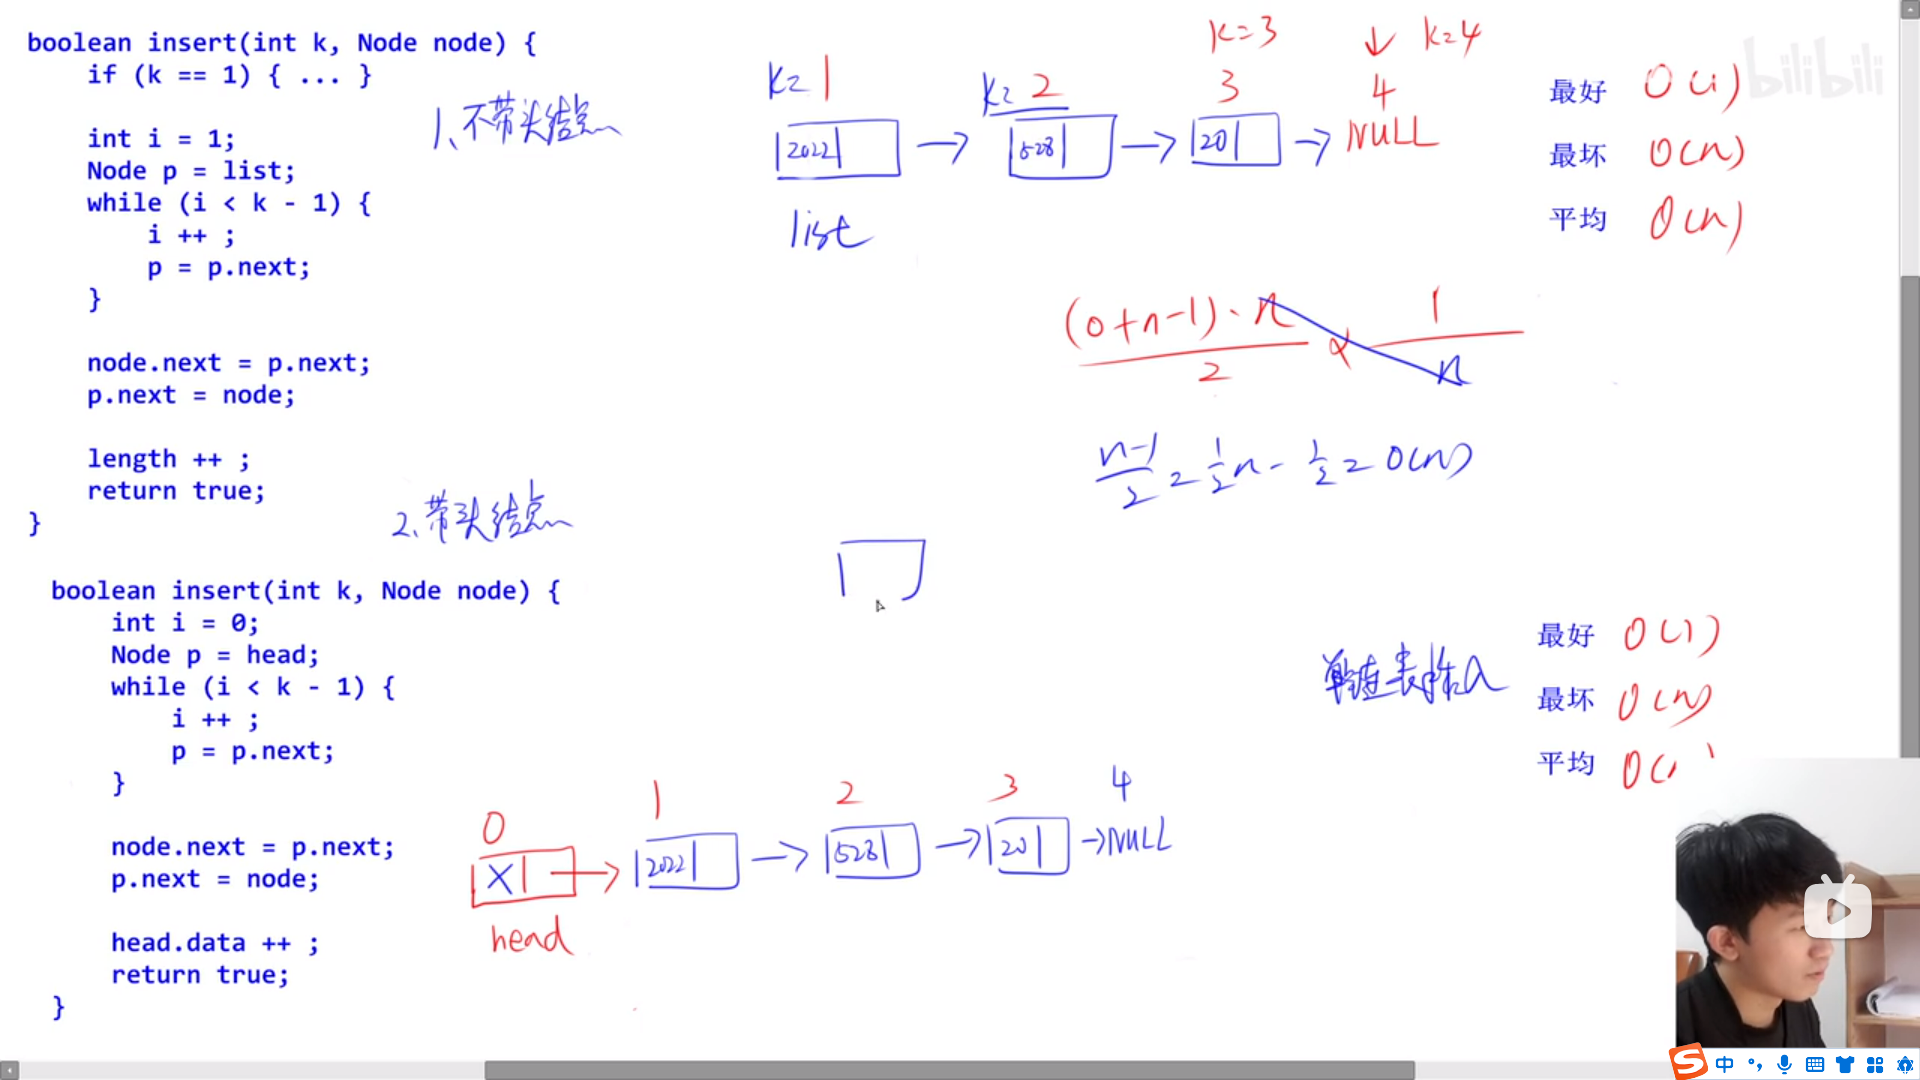 boolean insert(int k, Node node) {
if (k == 1) { ... }
1、不带头结点
int i = 1;
Node p = list;
while (i < k - 1) {
i ++ ;
p = p.next;
}
node.next = p.next;
p.next = node;
length ++ ;
return true;
}
k=3 ↓ k=4
k= 1 k= 2 3 4
2022 → 528 → 20 → NULL
list
bilibili
最好 O(1)
最坏 O(n)
平均 O(n)
(0+n-1)·n / 2 × 1 / n
n-1 / 2 = 1/2 n - 1/2 = O(n)
2、带头结点
boolean insert(int k, Node node) {
int i = 0;
Node p = head;
while (i < k - 1) {
i ++ ;
p = p.next;
}
node.next = p.next;
p.next = node;
head.data ++ ;
return true;
}
0 1 2 3 4
X → 2022 → 528 → 20 → NULL
head
单链表插入
最好 O(1)
最坏 O(n)
平均 O(
中